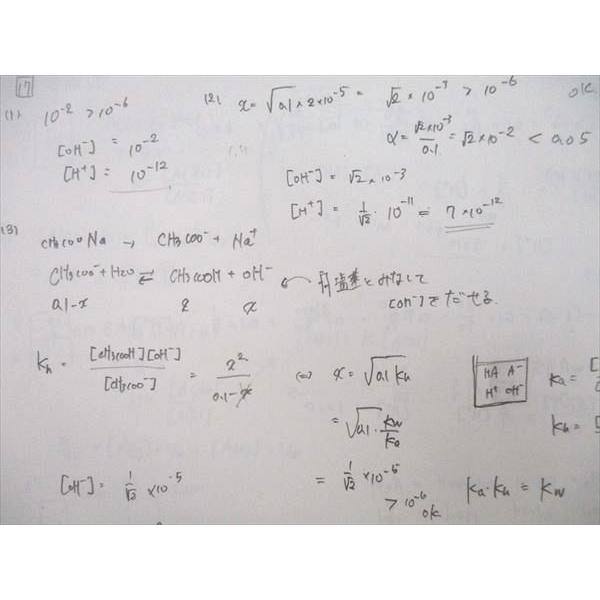 17
(1) 10⁻² > 10⁻⁶
[OH⁻] = 10⁻²
[H⁺] = 10⁻¹²
(2) x = √(0.1 × 2×10⁻⁵) = √2 × 10⁻³ > 10⁻⁶ ok
α = √2×10⁻³ / 0.1 = √2 × 10⁻² < 0.05
[OH⁻] = √2 × 10⁻³
[H⁺] = 1/√2 · 10⁻¹¹ = 7×10⁻¹²
(3) CH₃COONa → CH₃COO⁻ + Na⁺
CH₃COO⁻ + H₂O ⇄ CH₃COOH + OH⁻ ← 弱塩基とみなして
0.1-x x x [OH⁻]をだせる.
Kh = [CH₃COOH][OH⁻] / [CH₃COO⁻] = x² / 0.1-x ⇔ x = √(0.1 Kh)
= √(0.1 · Kw/Ka)
HA A⁻
H⁺ OH⁻
Ka = [
Kh = [
[OH⁻] = 1/√2 × 10⁻⁵
= 1/√2 × 10⁻⁵
> 10⁻⁶ ok
Ka · Kh = Kw